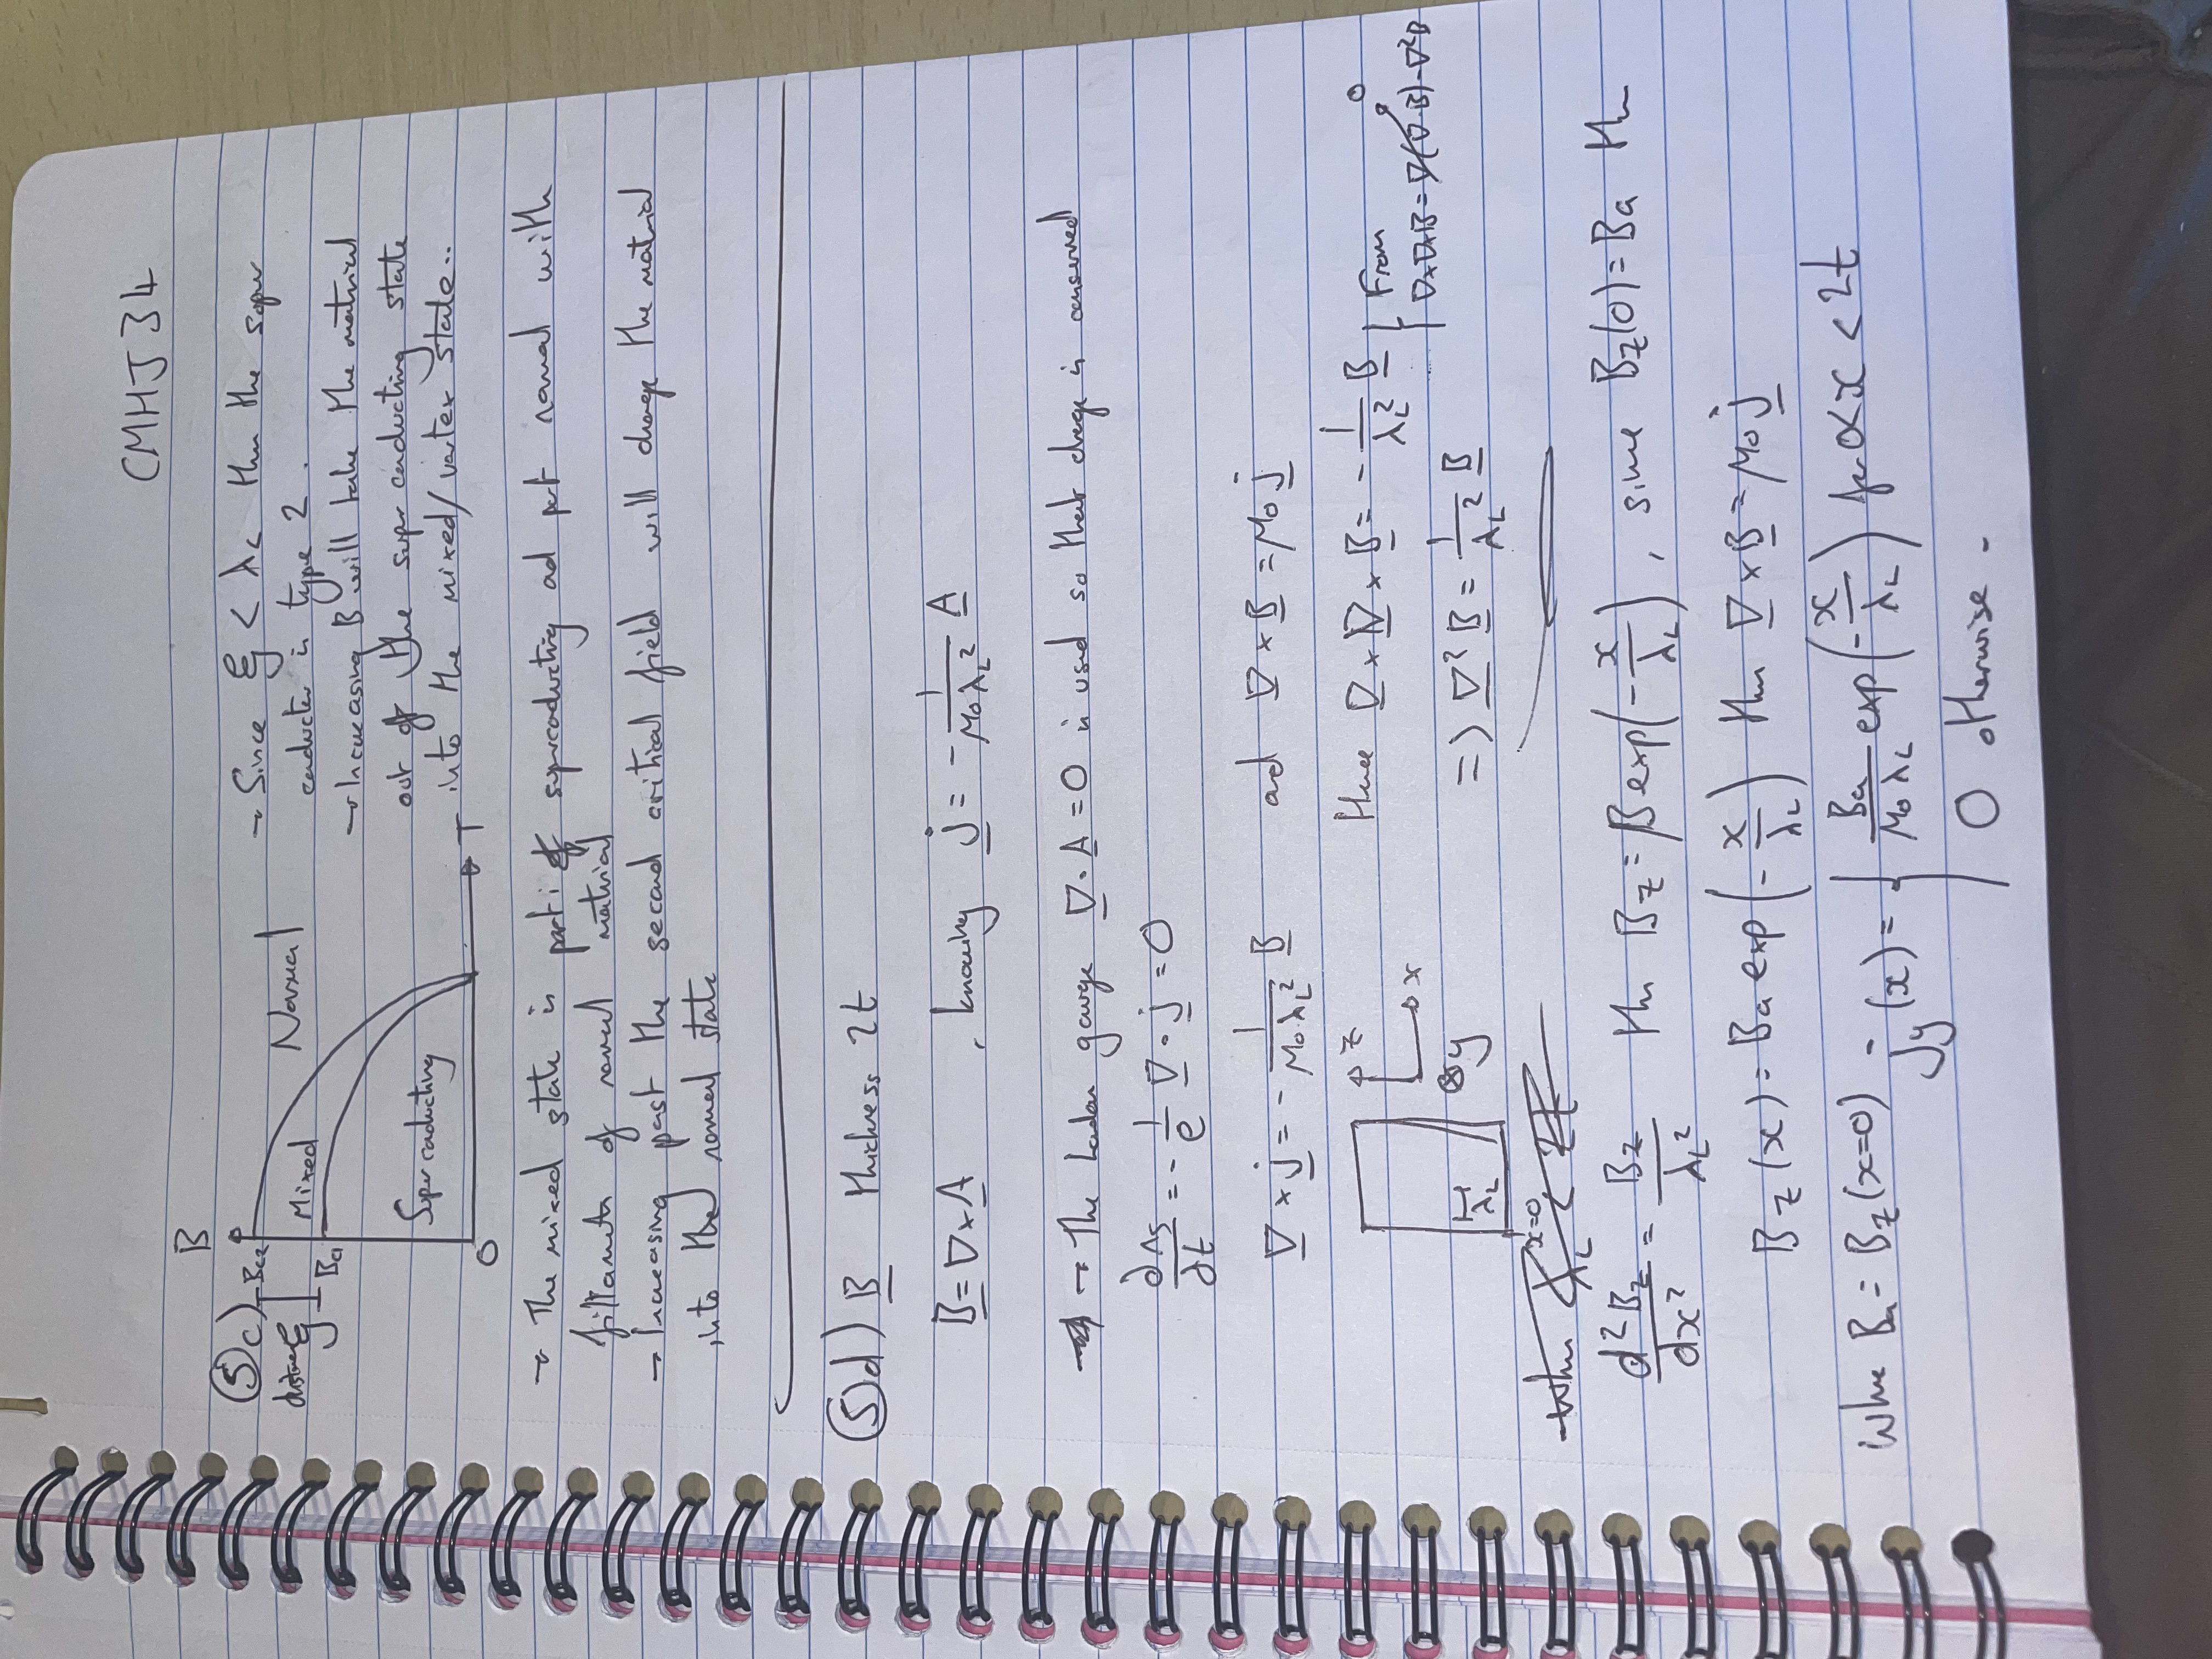 CMHJ34
B
5c)
Bc2
distance ξ
Bc1
Mixed
Normal
Superconducting
O
T
→ Since ξ < λL then the super
conductor is type 2.
→ Increasing B will take the material
out of the superconducting state
into the mixed/vortex state..
→ The mixed state is part superconducting and part normal with
of normal material
→ Increasing past the second critical field will change the material
into the normal state
5d) B thickness 2t
B = ∇×A , knowing j = -1/(μ0λL²) A
→ The London gauge ∇·A = 0 is used so that charge is conserved
∂ns/∂t = -1/e ∇·j = 0
∇×j = -1/(μ0λL²) B and ∇×B = μ0 j
z
x
y
λL
x=0
Hence ∇×∇×B = -1/λL² B | From
∇×∇×B = ∇(∇·B) - ∇²B
0
=> ∇²B = 1/λL² B
When λL < 2t
d²Bz/dx² = Bz/λL² then Bz = B exp(-x/λL), since Bz(0) = Ba then
Bz(x) = Ba exp(-x/λL) then ∇×B = μ0 j
where Ba = Bz(x=0) jy(x) = { Ba/(μ0λL) exp(-x/λL) for 0<x<2t
0 otherwise.